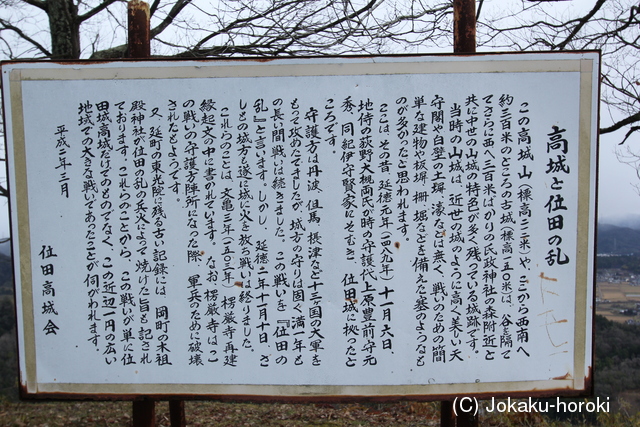 高城と位田の乱
この高城山(標高二三一米)や、ここから西南へ
約三百米のところの古城(標高一五〇米)は、谷を隔て
てさらに西へ三百米ばかりの氏政神社の森附近と
共に中世の山城の特色が多く残っている城跡です。
当時の山城は、近世の城のように高く美しい天
守閣や白壁の土塀、濠などは無く、戦いのための簡
単な建物や板塀、柵、堀などを備えた塞のようなも
のが多かったと思われます。
ここは、その昔、延徳元年(一四八九年)十一月六日、
地侍の荻野・大槻両氏が時の守護代上原豊前守元
秀、同紀伊守賢家にそむき、位田城に拠ったと
ころです。
守護方は丹波、但馬、摂津など十三国の大軍を
もって攻めたてましたが、城方の守りは固く満一年も
の長い間戦いは続きました。この戦いを『位田の
乱』と言います。しかし、延徳二年十一月十日、さ
しもの城方も遂に城に火を放ち戦いは終りました。
これらのことは、文亀三年(一五〇三年)楞厳寺再建
縁起文の中に書かれています。なお、楞厳寺はこ
の戦いの守護方陣所になった際、軍兵のために破壊
されたようです。
又、延町の東光院に残る古い記録には、岡町の木祖
殿神社が位田の乱の兵火によって焼けた旨も記され
ております。これらのことから、この戦いが単に位
田城高城だけでのものでなく、この近辺一円の広い
地域での大きな戦いであったことが伺がわれます。
平成二年三月
位田高城会
(C) Jokaku-horoki